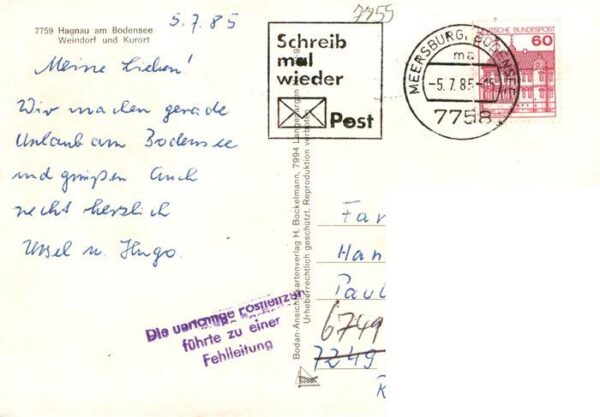 5.7.85
7759 Hagnau am Bodensee
Weindorf und Kurort
Meine Lieben!
Wir machen gerade
Urlaub am Bodensee
und grüßen Euch
recht herzlich
Ursel u. Hugo.
7755
Schreib
mal
wieder
Post
DEUTSCHE BUNDESPOST
60
MEERSBURG, BODENSEE
ma
-5.7.85-15
7758
Bodan-Ansichtskartenverlag H. Bockelmann, 7994 Langenargen
Urheberrechtlich geschützt. Reproduktion verboten
bodan
Fa
Han
Paul
6749
7249
Die verkehrte Postleitzahl
führte zu einer
Fehlleitung